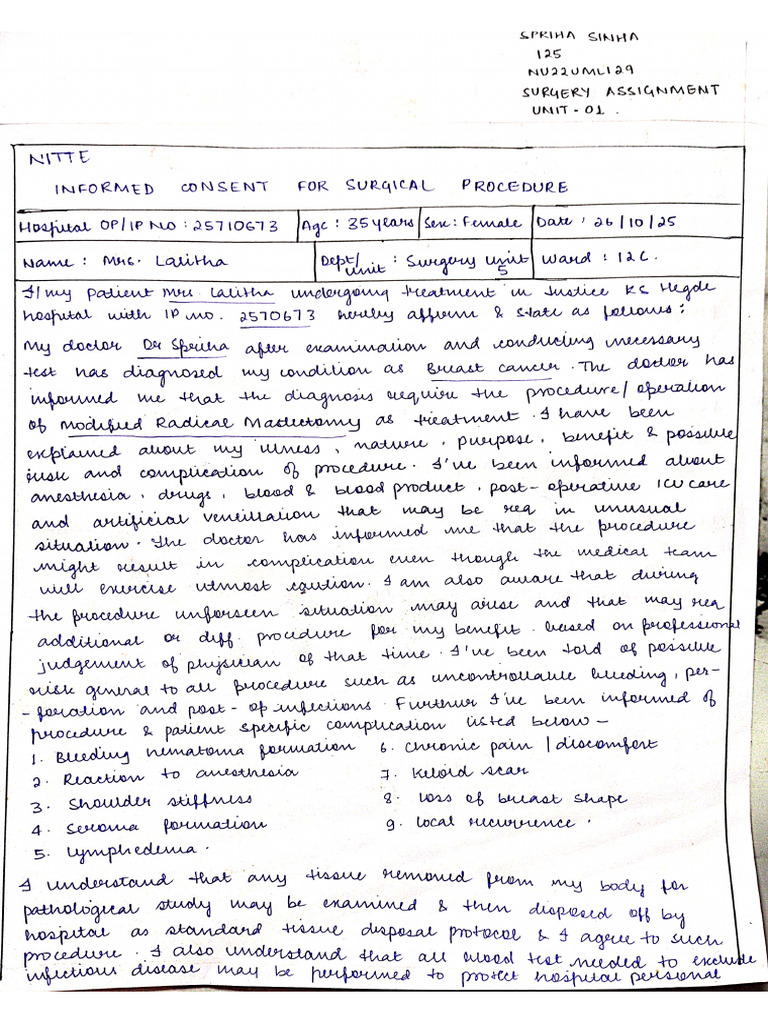 SPRIHA SINHA
125
NU22UML129
SURGERY ASSIGNMENT
UNIT - 01.
NITTE
INFORMED CONSENT FOR SURGICAL PROCEDURE
Hospital OP/IP NO : 25710673 Age : 35 years Sex : Female Date : 26/10/25
Name : Mrs. Lalitha Dept/unit : Surgery unit 5 Ward : 12C.
I/my patient Mrs. Lalitha undergoing treatment in Justice KS Hegde
hospital with IP no. 2570673 hereby affirm & state as follows :
My doctor Dr Spriha after examination and conducting necessary
test has diagnosed my condition as Breast cancer. The doctor has
informed me that the diagnosis require the procedure/operation
of Modified Radical Mastectomy as treatment. I have been
explained about my illness, nature, purpose, benefit & possible
risk and complication of procedure. I've been informed about
anesthesia, drugs, blood & blood product, post-operative ICU care
and artificial ventillation that may be req in unusual
situation. The doctor has informed me that the procedure
might result in complication even though the medical team
will exercise utmost caution. I am also aware that during
the procedure unforseen situation may arise and that may req
additional or diff. procedure for my benefit based on professional
judgement of physician of that time. I've been told of possible
risk general to all procedure such as uncontrollable bleeding, per-
-foration and post-op infections. Further I've been informed of
procedure & patient specific complication listed below -
1. Bleeding hematoma formation 6. Chronic pain / discomfort
2. Reaction to anesthesia 7. Keloid scar
3. Shoulder stiffness 8. loss of breast shape
4. Seroma formation 9. local recurrence.
5. Lymphedema.
I understand that any tissue removed from my body for
pathological study may be examined & then disposed off by
hospital as standard tissue disposal protocol & I agree to such
procedure. I also understand that all blood test needed to exclude
infectious disease may be performed to protect hospital personal